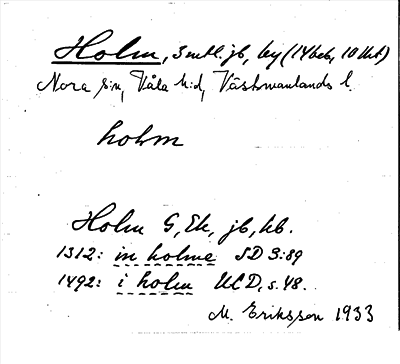 Holm, 3 mtl. jb, by (14 beb, 10 Uht)
Nora s:n, Våla h:d, Västmanlands l.
holm
Holm G, Ek, jb, kb.
1312: in holme SD 3:89
1492: i holm UCD, s. 48.
M. Eriksson 1933